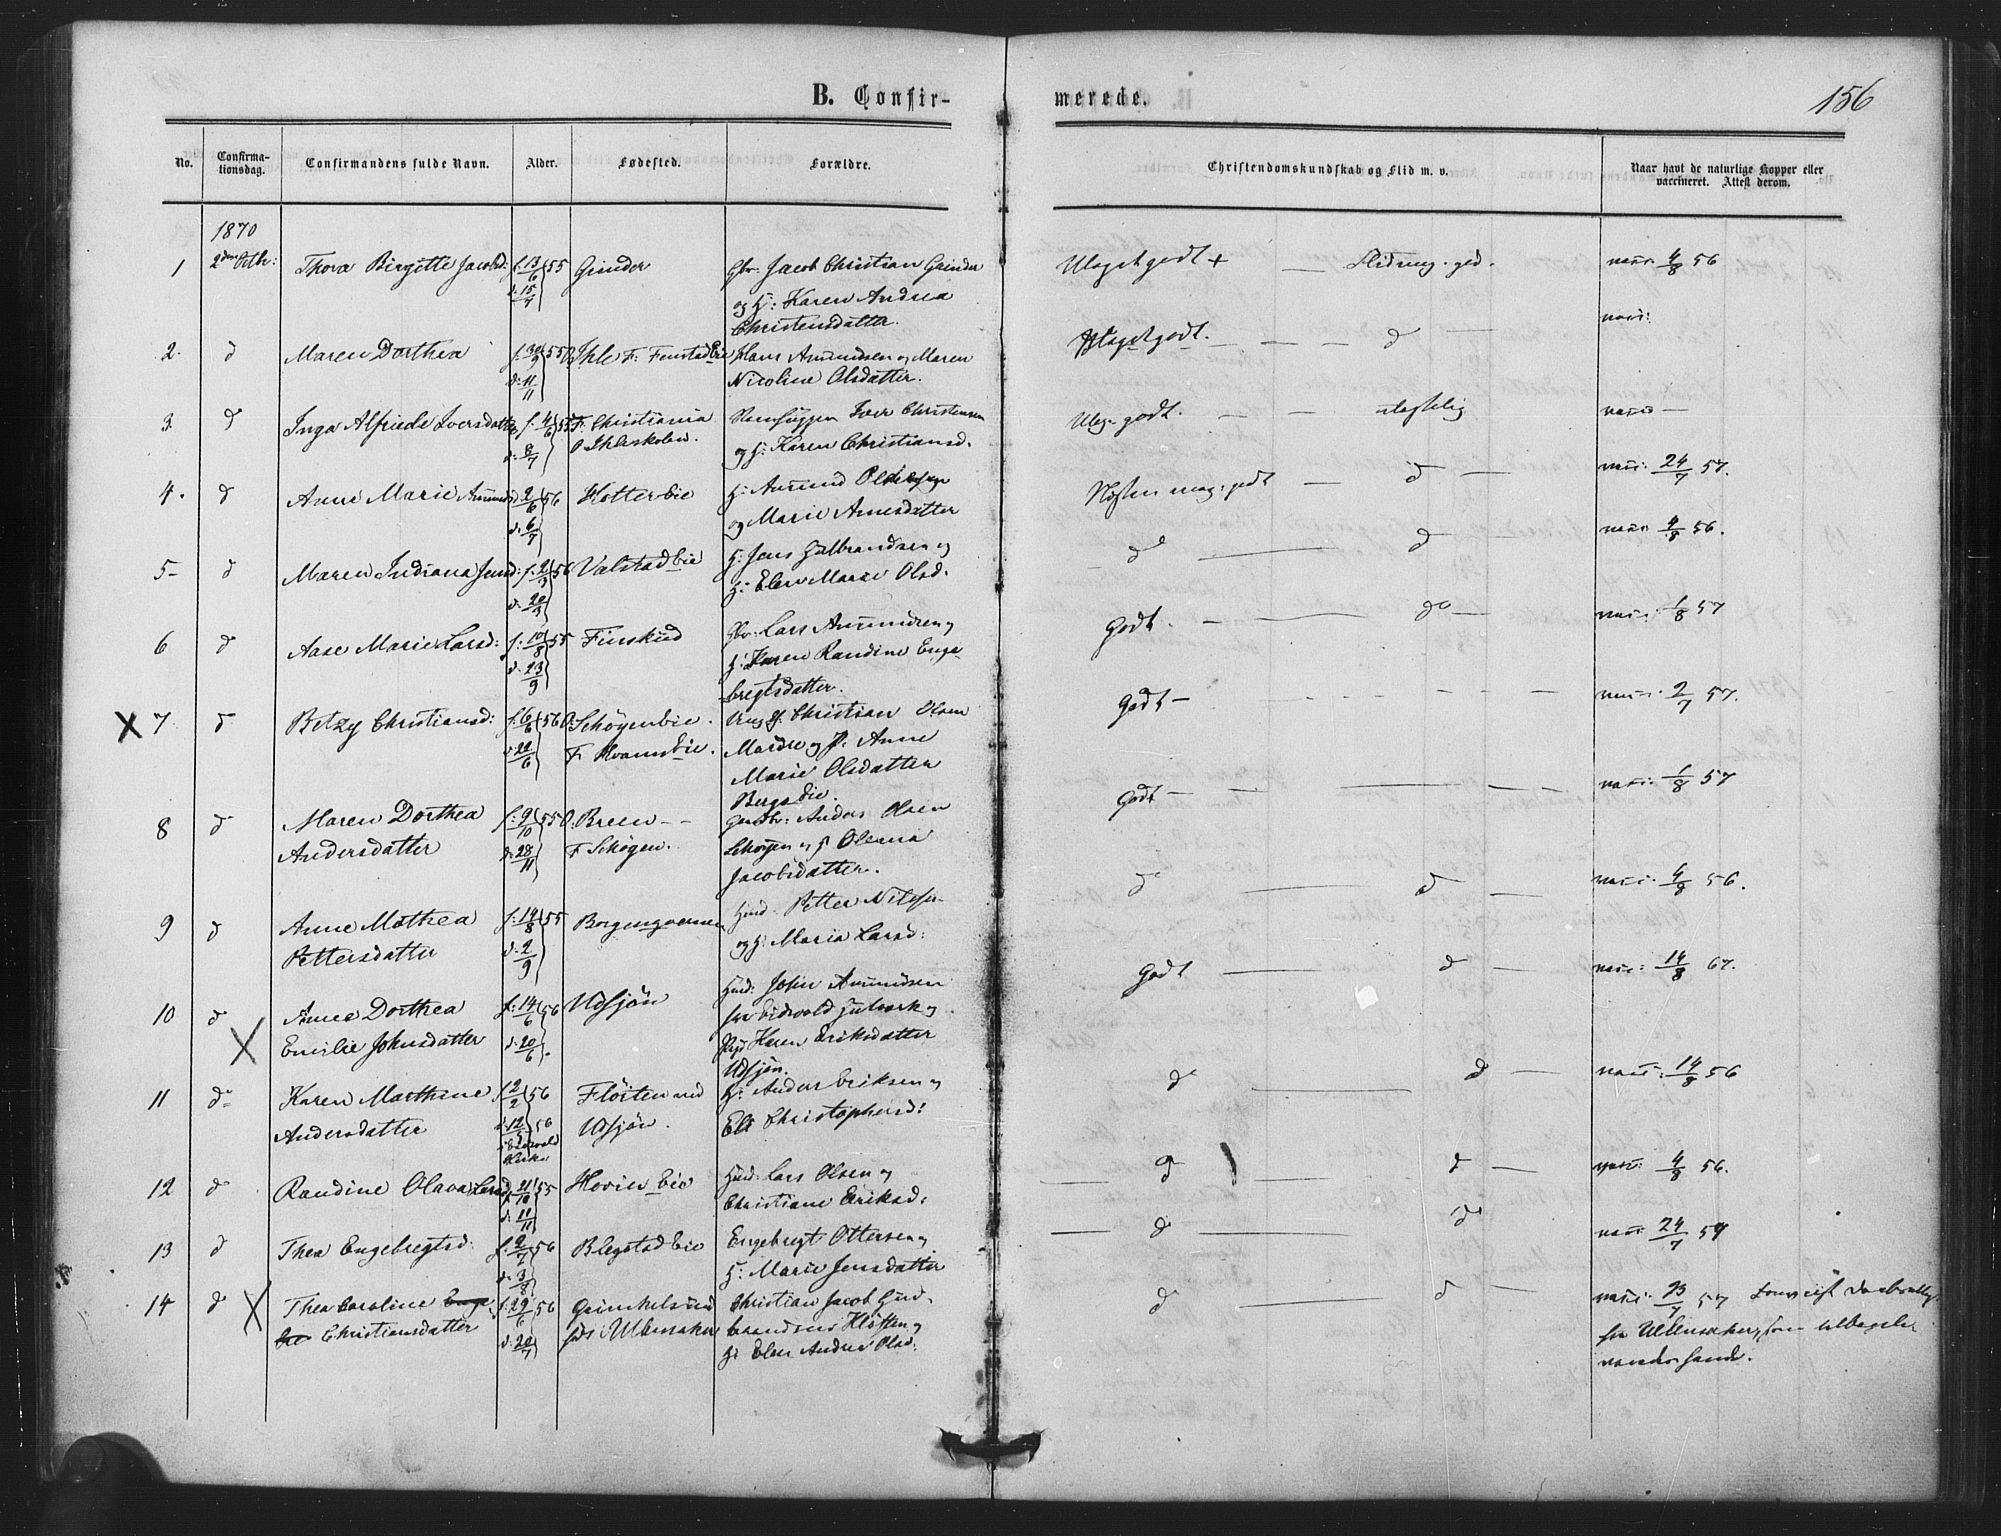 B. Confir-
merede.
156
No.
Confirma-
tionsdag.
Confirmandens fulde Navn.
Alder.
Fødested.
Forældre.
Christendomskundskab og Flid m. v.
Naar havt de naturlige Kopper eller
vaccineret. Attest derom.
1870
1 2den Octbr: Thora Birgitte Jacobsd: f. 13/6 55 Grinder Gbr: Jacob Christian Grinder Meget godt + — vacc. 4/8 56
d. 15/7 og H: Karen Andrea
Christensdatter.
2. d Maren Dorthea f. 30/9 55 O, Ihle F: Fenstad Eie Hans Amundsen og Maren Meget godt. — d — vacc:
d: 11/11 Nicoline Olsdatter.
3 d Inga Alfriede Iversdatter f. 4/6 55 F. Christiania Iver Christensen Meg. godt. — — vacc —
d: 8/7 O Ihleskolen. og H: Karen Christiansd.
4. d Anne Marie Amundsd 2/6 56 Hotter Eie H: Amund Næsten meg: godt — d — vacc: 24/7 57.
d. 6/7 og Marie Arnesdatter
5 – d Maren Indiana Jensd: f. 2/3 56 Valstad Eie H: Jens Gulbrandsen og — do — d — vacc 4/8 56.
d. 20/3 H: Elen Marie Olsd.
6 d Aase Marie Larsd: f: 10/8 55 Finskud Gbr: Lars Amundsen og Godt. — do — vacc: 1/8 57
d. 23/9 H: Karen Randine Enge-
bregtsdatter.
X 7. d Betzy Christiansd: f. 6/6 56 O. Schøgen Eie. Ung. Christian Olsen Godt — vacc. 2/7 57.
d 22/6 F Kvams Eie. og P: Anne
Marie Olsdatter
Bergs Eie.
8 d Maren Dorthea f: 9/10 55 O: Breen – – Gaardbr: Anders Olsen Godt — vacc: 1/8 57
Andersdatter d: 28/11 F Schøgen. Schøgen og H Oleana
Jacobsdatter.
9 d Anne Mathea f: 14/8 55 Borgengaernen Huusd. Petter Nilsen do — d — vacc: 4/8 56.
Pettersdatter d: 2/9 og H: Maria Larsd:
10 d X Anne Dorthea f: 14/6 56 Udsjøn Huusd: John Amundsen Godt — d — vacc: 14/8 67.
Emilie Johnsdatter d: 20/6. fra Eidsvold og
Karen Eriksdatter
Udsjøn.
11 do Karen Marthine f 2/2 56 Fløiten ved H: Anders Eriksen og do — d — vacc: 14/8 56
Andersdatter d: 12/ 56 Udsjøn. Eli Christophersd:
i Eidsvold
Kirke
12 d Randine Olava Larsd f. 21/10 55 Hovin Eie Huusd: Lars Olsen og — do — d — vacc: 4/8 56.
d: 11/11 Christiane Eriksd:
13 d Thea Engebregtsd. f. 2/7 56 Blegstad Eie Engebregt Ottersen og — do — do vacc 24/7 57
d. 3/8 H: Marie Jensdatter
14 d X Thea Caroline Enge f. 29/6 56 Grinkelsrud Christian Jacob Gud- do — d — vacc: 13/7 57
Christiansdatter d: 20/7 i Ullensaker brandsen Kløften og fra Ullensaker, som tilbage
H: Elen Andrea Olsd: